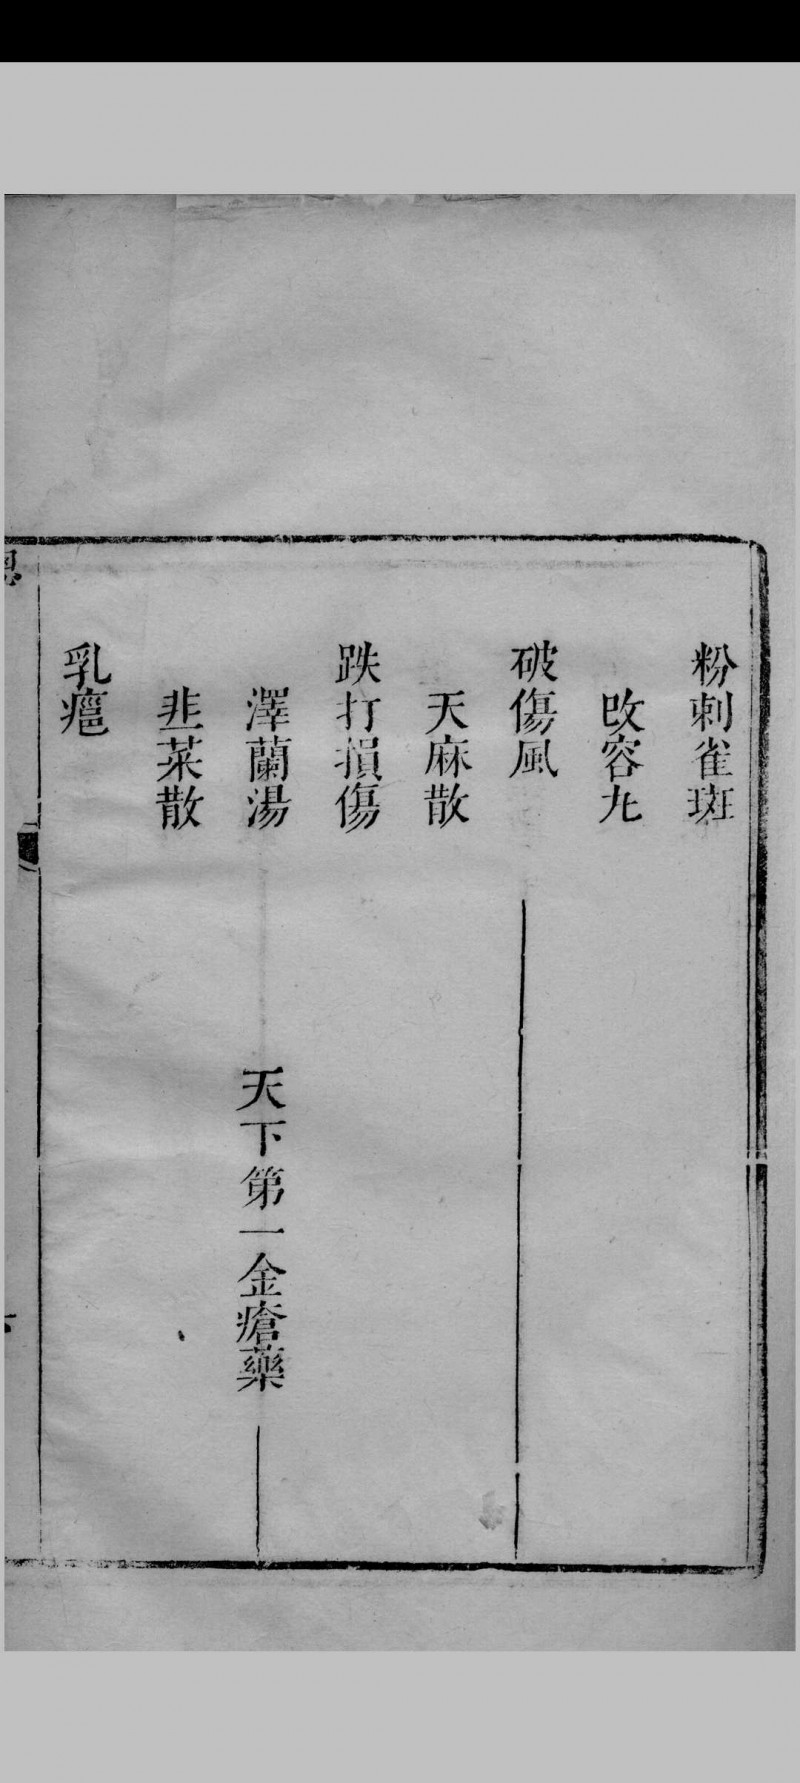 粉刺雀斑
改容丸
破傷風
天麻散
跌打損傷
澤蘭湯
天下第一金瘡藥
韭菜散
乳癰